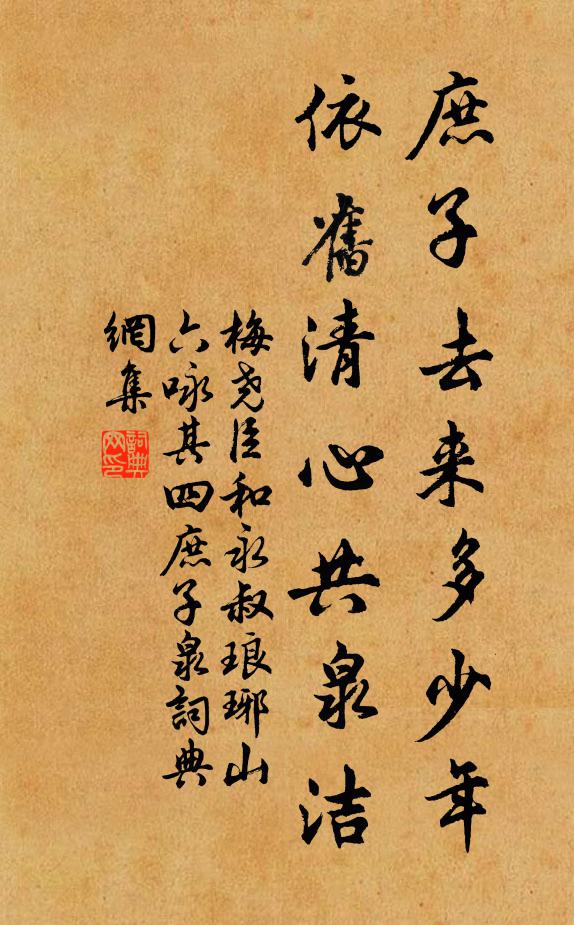 庶子去来多少年
依舊清心共泉洁
梅尧臣和永叔琅琊山
六咏其四庶子泉詞典
網集
詞典
网印